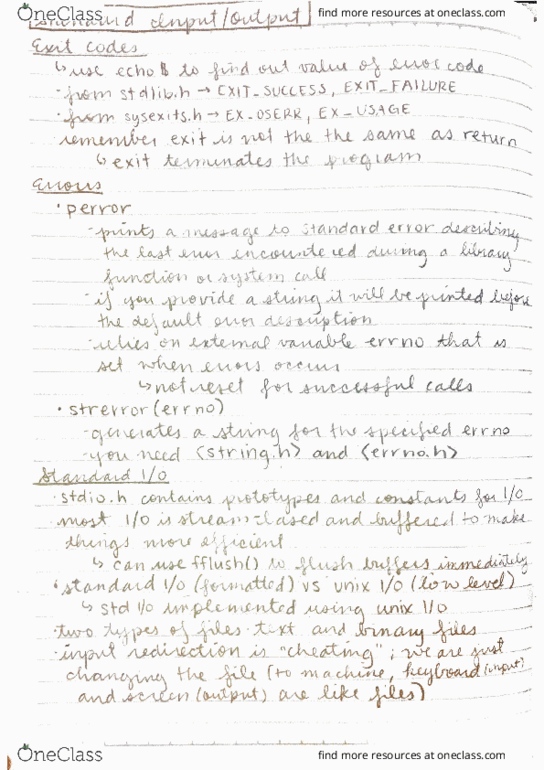 OneClass
find more resources at oneclass.com
Standard Input/Output
Exit codes
↳ use echo $ to find out value of error code
· from stdlib.h → EXIT_SUCCESS, EXIT_FAILURE
· from sysexits.h → EX_OSERR, EX_USAGE
remember exit is not the the same as return
↳ exit terminates the program
Errors
· perror
- prints a message to standard error describing
the last error encountered during a library
function or system call
- if you provide a string it will be printed before
the default error description
- relies on external variable errno that is
set when errors occur
↳ not reset for successful calls
· strerror(errno)
- generates a string for the specified errno
- you need <string.h> and <errno.h>
Standard I/O
· stdio.h contains prototypes and constants for I/O
most I/O is stream-based and buffered to make
things more efficient
↳ can use fflush() to flush buffers immediately
· standard I/O (formatted) vs unix I/O (low level)
↳ std I/O implemented using unix I/O
· two types of files - text and binary files
- input redirection is "cheating"; we are just
changing the file (to machine, keyboard (input)
and screen (output) are like files)
OneClass
find more resources at oneclass.com